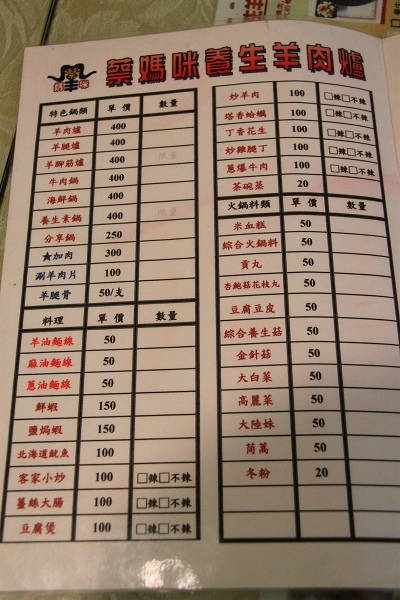 蔡媽咪養生羊肉爐
特色鍋類 單價 數量
羊肉爐 400
羊腿爐 400
羊腳筋爐 400
牛肉鍋 400
海鮮鍋 400
養生素鍋 400
分享鍋 250
★加肉 300
涮羊肉片 100
羊腿骨 50/支
料理 單價 數量
羊油麵線 50
麻油麵線 50
蔥油麵線 50
鮮蝦 150
鹽焗蝦 150
北海道魷魚 100
客家小炒 100 □辣□不辣
薑絲大腸 100 □辣□不辣
豆腐煲 100 □辣□不辣
炒羊肉 100 □辣□不辣
塔香蛤蠣 100 □辣□不辣
丁香花生 100 □辣□不辣
炒雞腿丁 100 □辣□不辣
蔥爆牛肉 100 □辣□不辣
茶碗蒸 20
火鍋料類 單價 數量
米血糕 50
綜合火鍋料 50
貢丸 50
杏鮑菇花枝丸 50
豆腐豆皮 50
綜合養生菇 50
金針菇 50
大白菜 50
高麗菜 50
大陸妹 50
茼萵 50
冬粉 20